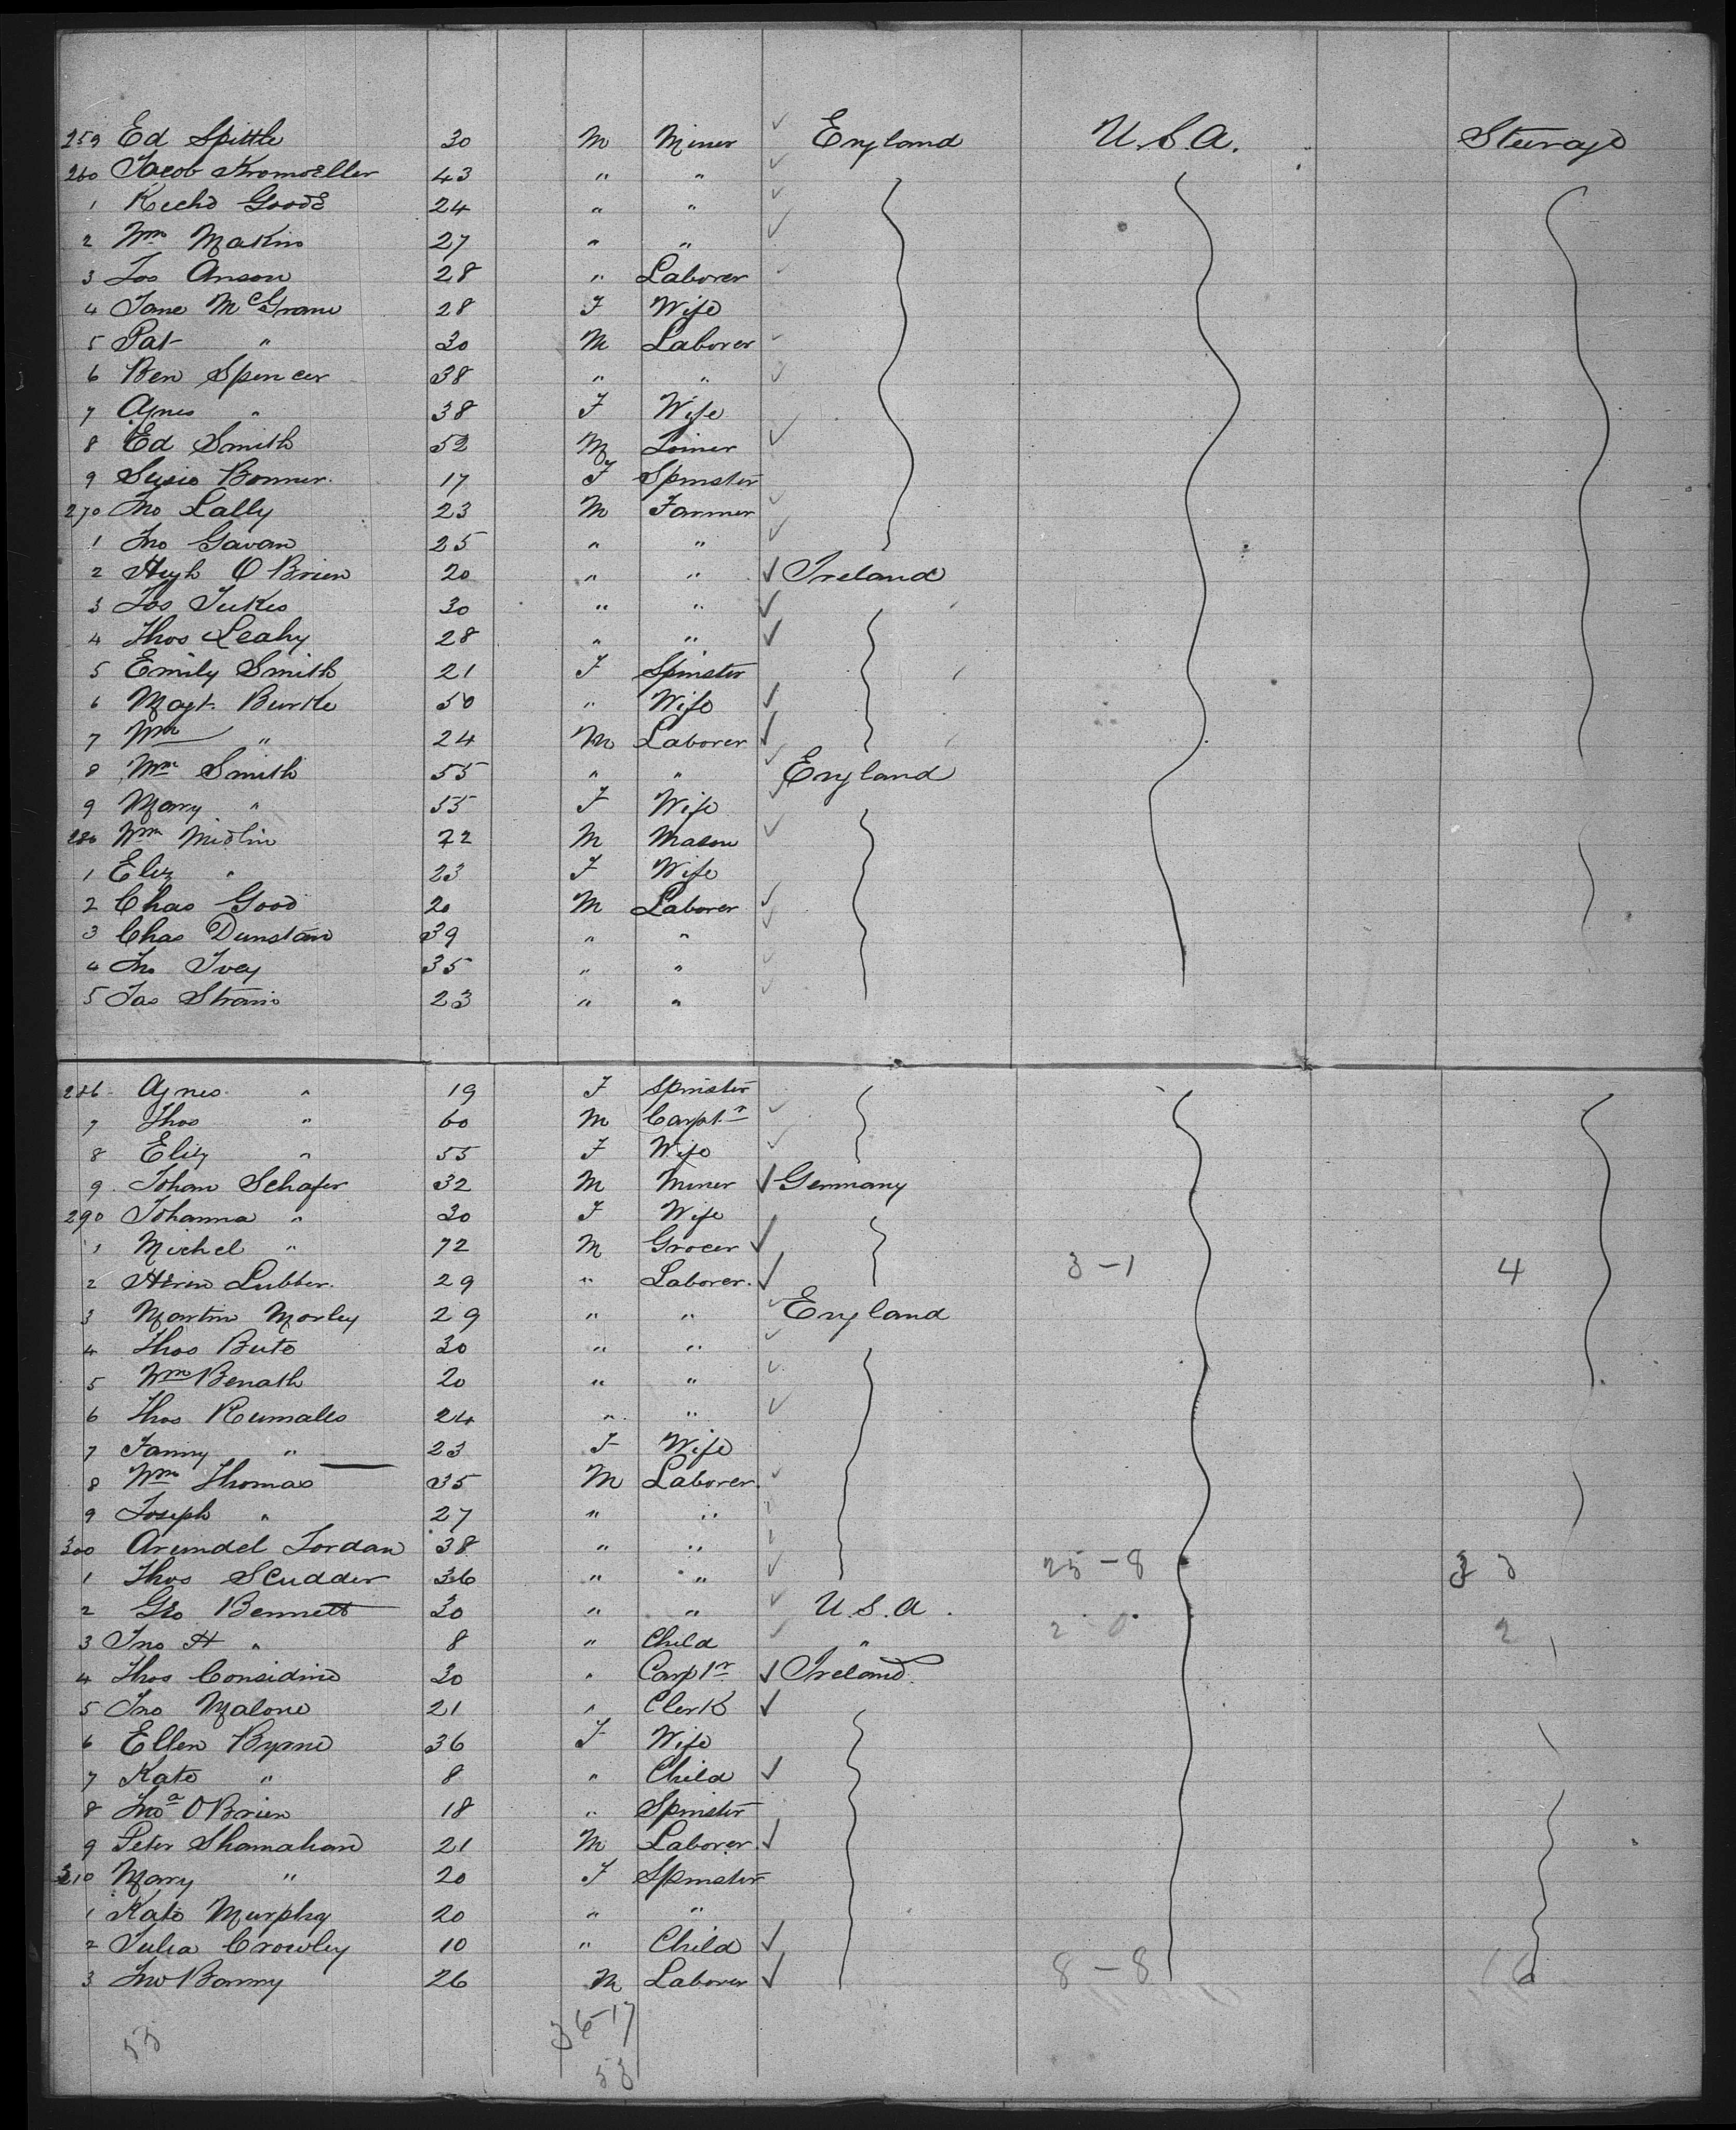 259 Ed Spittle 30 M Miner England U.S.A. Steerage
260 Jacob Kromoeller 43 " "
1 Richd Goode 24 " "
2 Wm Makin 27 " "
3 Jos Anson 28 " Laborer
4 Jane McGrane 28 F Wife
5 Pat " 30 M Laborer
6 Ben Spencer 38 " "
7 Agnes " 38 F Wife
8 Ed Smith 52 M Joiner
9 Susie Bonner 17 F Spinster
270 Jno Lally 23 M Farmer
1 Jno Gavan 25 " "
2 Hugh O Brien 20 " " Ireland
3 Jos Jukes 30 " "
4 Thos Leahy 28 " "
5 Emily Smith 21 F Spinster
6 Magt. Burke 50 " Wife
7 Wm " 24 M Laborer
8 Wm Smith 55 " " England
9 Mary " 55 F Wife
280 Wm Midlin M Mason
1 Eliz " 23 F Wife
2 Chas Good 20 M Laborer
3 Chas Dunstan 39 " "
4 Jno Ivey 35 " "
5 Jas Strain 23 " "
286 Agnes " 19 F Spinster
7 Thos " 60 M Carptr
8 Eliz " 55 F Wife
9 Johan Schafer 32 M Miner Germany
290 Johanna " 30 F Wife
1 Michel " 72 M Grocer
2 Lubber 29 " Laborer 3-1 4
3 Martin Morley 29 " " England
4 Thos Bute 30 " "
5 Wm Benath 20 " "
6 Thos Rumales 24 " "
7 Fanny " 23 F Wife
8 Wm Thomas 35 M Laborer
9 Joseph " 27 " "
300 Arundel Jordan 38 " "
1 Thos Scudder 36 " " 25-8
2 Geo Bennett 30 " " U.S.A.
3 Jno H " 8 " Child " 2 0 2
4 Thos Considine 30 " Carptr Ireland
5 Jno Malone 21 " Clerk
6 Ellen Byrne 36 F Wife
7 Kate " 8 " Child
8 Jnoa O Brien 18 " Spinster
9 Peter Shanahan 21 M Laborer
310 Mary " 20 F Spinster
1 Kate Murphy 20 " "
2 Julia Crowley 10 " Child
3 Jno Banny 26 M Laborer 8-8 16
36-17
53 53